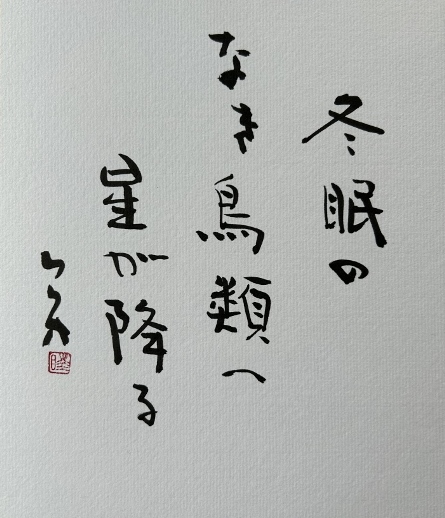 冬眠の
なき鳥類へ
星が降る